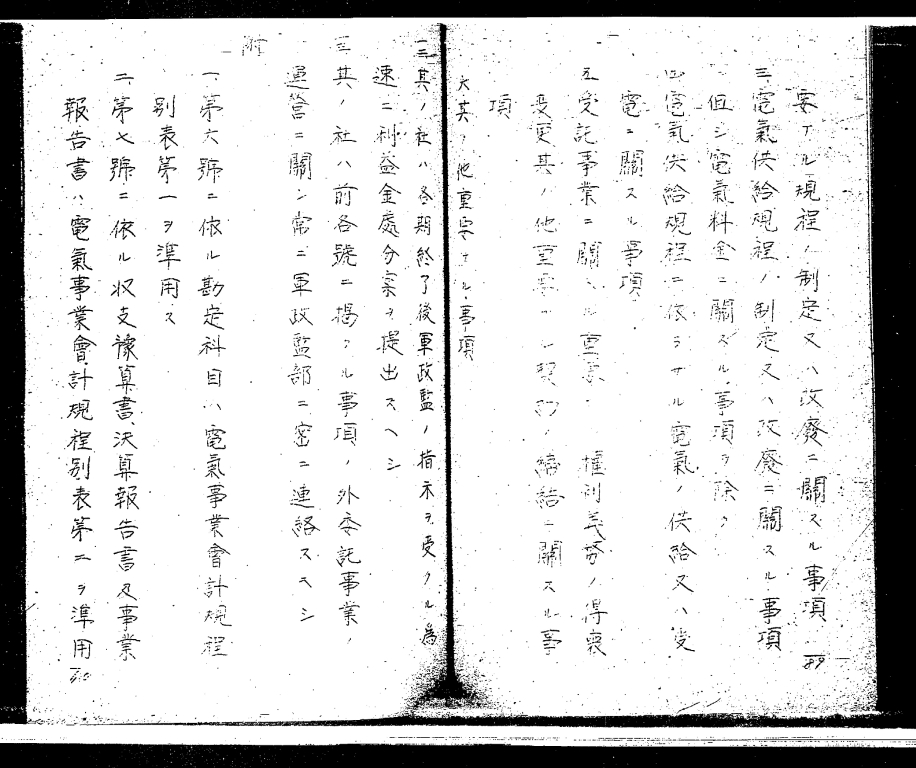 要アル規程ノ制定又ハ改廢ニ關スル事項
三、電氣供給規程ノ制定又ハ改廢ニ關スル事項
但シ電氣料金ニ關スル事項ヲ除ク
四、電氣供給規程ニ依ラザル電氣ノ供給又ハ受
電ニ關スル事項
五、受託事業ニ關スル重要 權利義務ノ得喪
変更其ノ他重要ナル契約ノ締結ニ關スル事
項
六、其ノ他重要ナル事項
89
一三、其ノ社ハ各期終了後軍政監ノ指示ヲ受クル為
速ニ利益金處分案ヲ提出スヘシ
其ノ社ハ前各號ニ揭クル事項ノ外委託事業ノ
運營ニ關シ常ニ軍政監部ニ密ニ連絡スヘシ
附
一、第六號ニ依ル勘定科目ハ電氣事業會計規程
別表第一ヲ準用ス
二、第七號ニ依ル収支豫算書、決算報告書及事業
報告書ハ電氣事業會計規程別表第二ヲ準用